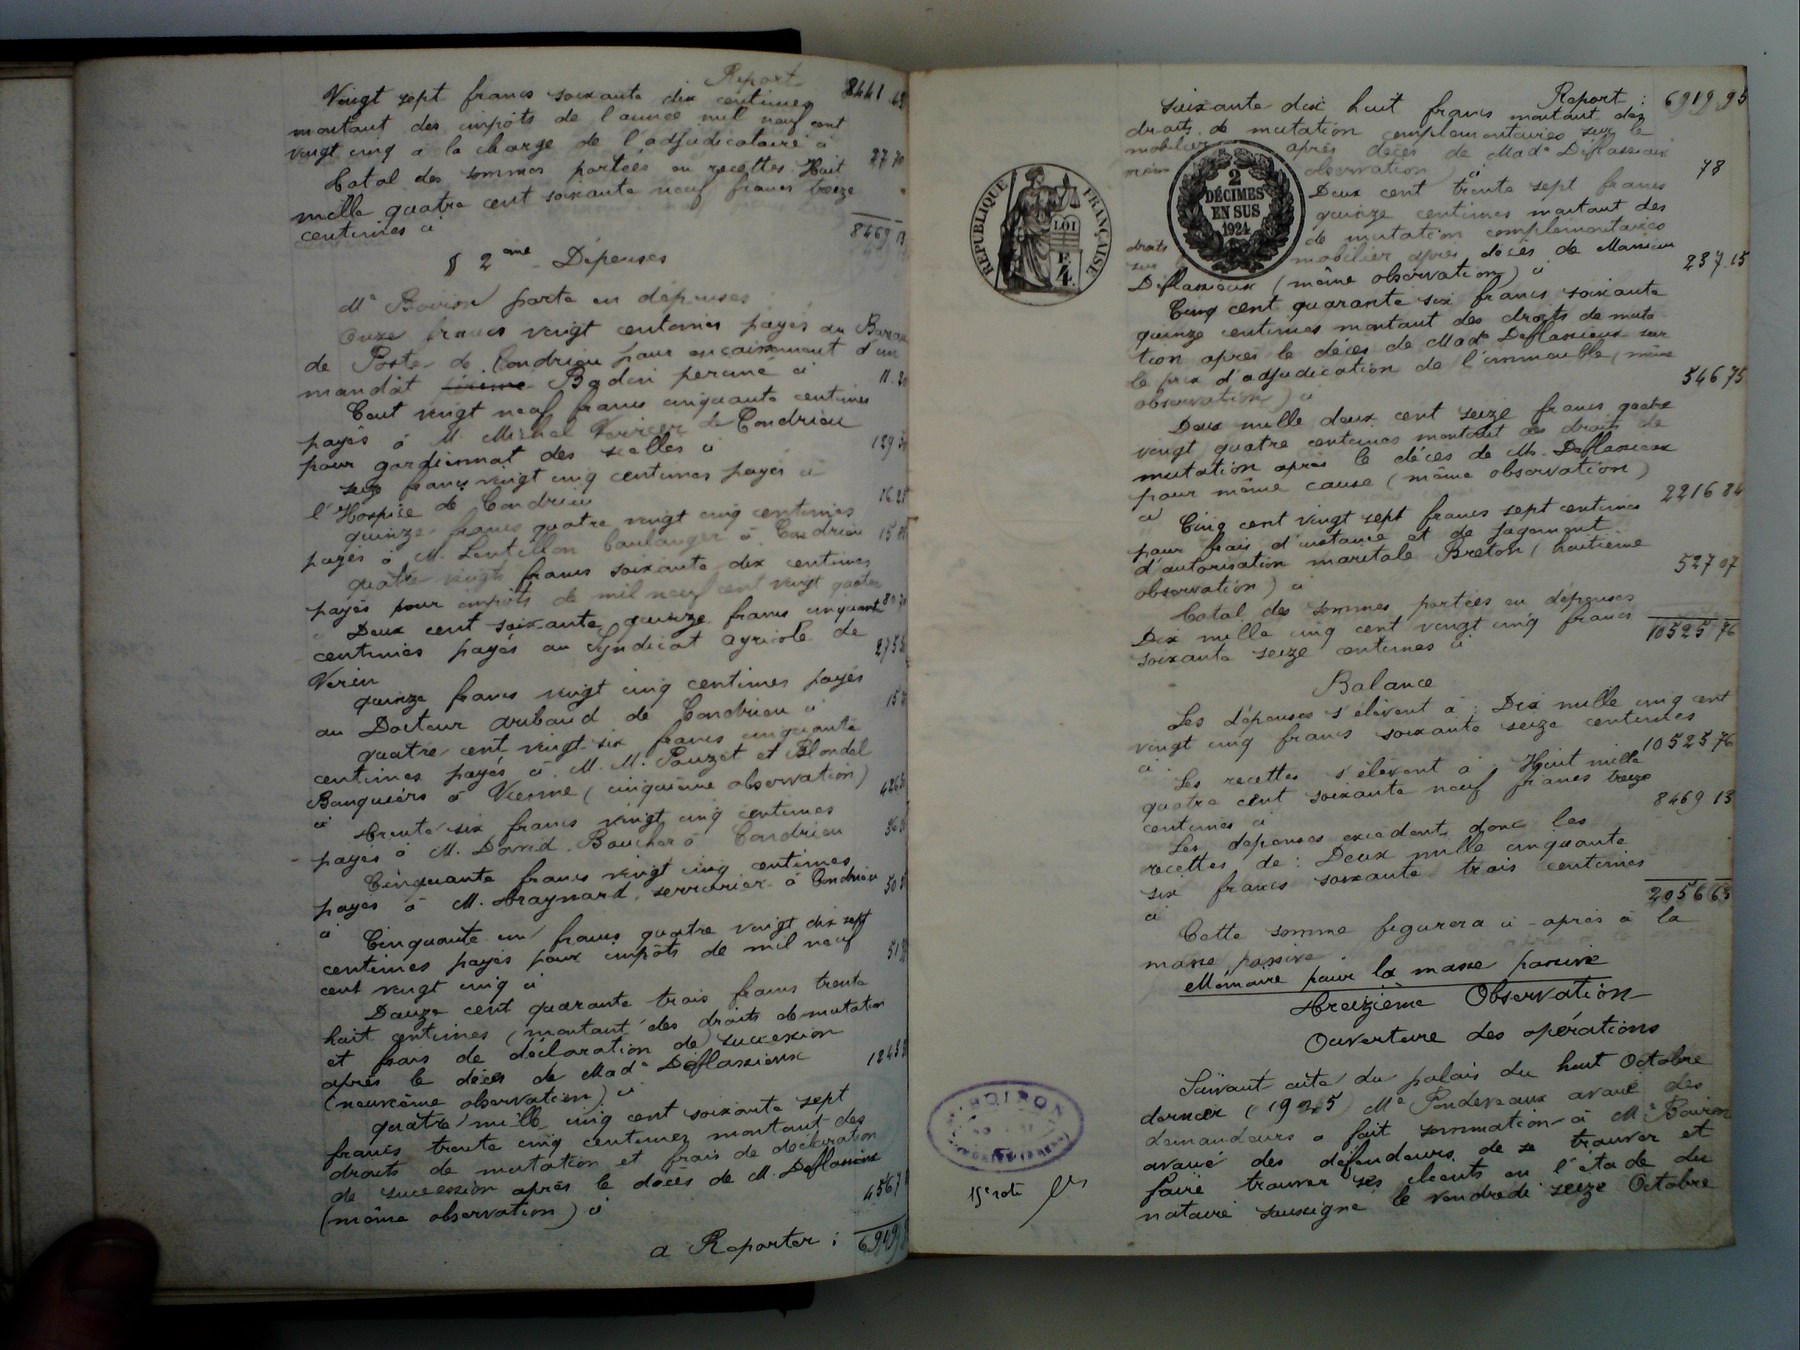 Report 8441
Vingt sept francs soixante dix centimes
montant des impôts de l'année mil neuf cent
vingt cinq à la charge de l'adjudicataire ci 27 70
Total des sommes portées en recettes Huit
mille quatre cent soixante neuf francs treize
centimes ci 8469 13
§ 2ème Dépenses
Me Boiron porte en dépenses :
Onze francs vingt centimes payés au Bureau
de Poste de Condrieu pour encaissement d'un
mandat Badin perime ci 11.20
Cent vingt neuf francs cinquante centimes
payés à M. Michel Verrier de Condrieu
pour gardiennat des scellés ci 129
seize francs vingt cinq centimes payés à
l'Hospice de Condrieu 16.25
quinze francs quatre vingt cinq centimes
payés à M. Lentillon boulanger à Condrieu 15
quatre vingt francs soixante dix centimes
payés pour impôts de mil neuf cent vingt quatre 80
Deux cent soixante quinze francs cinquante
centimes payés au Syndicat agricole de
Verin 275
quinze francs vingt cinq centimes payés
au Docteur Aribaud de Condrieu ci 15
quatre cent vingt six francs cinquante
centimes payés à M. M. Pouzet et Blondel
Banquiers à Vienne (cinquième observation)
ci 426
Trente six francs vingt cinq centimes
payés à M. David Boucher à Condrieu 36
Cinquante francs vingt cinq centimes
payés à M. Traynard serrurier à Condrieu
ci 50
Cinquante un francs quatre vingt dix sept
centimes payés pour impôts de mil neuf
cent vingt cinq ci 51
Douze cent quarante trois francs trente
huit centimes (montant des droits de mutation
et frais de déclaration de succession
après le décès de Made Deflassieux
(neuvième observation) ci 1243
quatre mille cinq cent soixante sept
francs trente cinq centimes montant des
droits de mutation et frais de déclaration
de succession après le décès de M. Deflassieux
(même observation) ci 4567
a Reporter : 6919
Report : 6919,95
soixante dix huit francs montant des
droits de mutation complémentaires sur le
mobilier après décès de Made Deflassieux
même observation) ci 78
Deux cent trente sept francs
quinze centimes montant des
droits de mutation complémentaires
sur mobilier après décès de Monsieur
Deflassieux (même observation) ci 237.15
Cinq cent quarante six francs soixante
quinze centimes montant des droits de muta
tion après le décès de Made Deflassieux sur
le prix d'adjudication de l'immeuble (même
observation) ci 546 75
Deux mille deux cent seize francs quatre
vingt quatre centimes montant des droits de
mutation après le décès de M. Deflassieux
pour même cause (même observation)
ci 2216 84
Cinq cent vingt sept francs sept centimes
pour frais d'instance et de jugement
d'autorisation maritale Breton (huitième
observation) ci 527 07
Total des sommes portées en dépenses
Dix mille cinq cent vingt cinq francs
soixante seize centimes ci 10525 76
Balance
Les dépenses s'élèvent à : Dix mille cinq cent
vingt cinq francs soixante seize centimes
ci 10525 76
Les recettes s'élèvent à : Huit mille
quatre cent soixante neuf francs treize
centimes ci 8469 13
Les dépenses excèdent donc les
recettes de : Deux mille cinquante
six francs soixante trois centimes
ci 2056 63
Cette somme figurera ci-après à la
masse passive
Mémoire pour la masse passive
Treizième Observation
Ouverture des opérations
Suivant acte du palais du huit Octobre
dernier (1925) Me Pondeveaux avoué des
demandeurs a fait sommation à Me Boiron
avoué des défendeurs de se trouver et
faire trouver ses clients en l'étude du
notaire soussigné le vendredi seize Octobre
RÉPUBLIQUE FRANÇAISE
LOI
F.
4.
2
DÉCIMES
EN SUS
1924
15e rôle